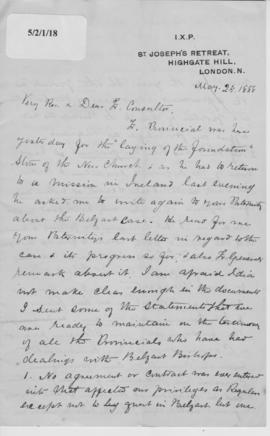 5/2/1/18
I.X.P.
ST JOSEPH'S RETREAT,
HIGHGATE HILL,
LONDON. N.
May. 24. 1888
Very Rev. & Dear Fr. Consultor,
Fr. Provincial was here
yesterday for the "laying of the Foundation"
Stone of the New Church & as he had to return
to a mission in Ireland last evening
he asked me to write again to your Paternity
about the Belfast case. He read for me
your Paternity's last letter in regard to the
case & its progress so far, & also Fr. General's
remark about it. I am afraid I did
not make clear enough in the documents
I sent some of the statements that we
are ready to maintain on the testimony
of all the Provincials who have had
dealings with Belfast Bishops.
1. No agreement or contract was ever entered
into that affected our privileges as Regulars
except not to beg quest in Belfast but once